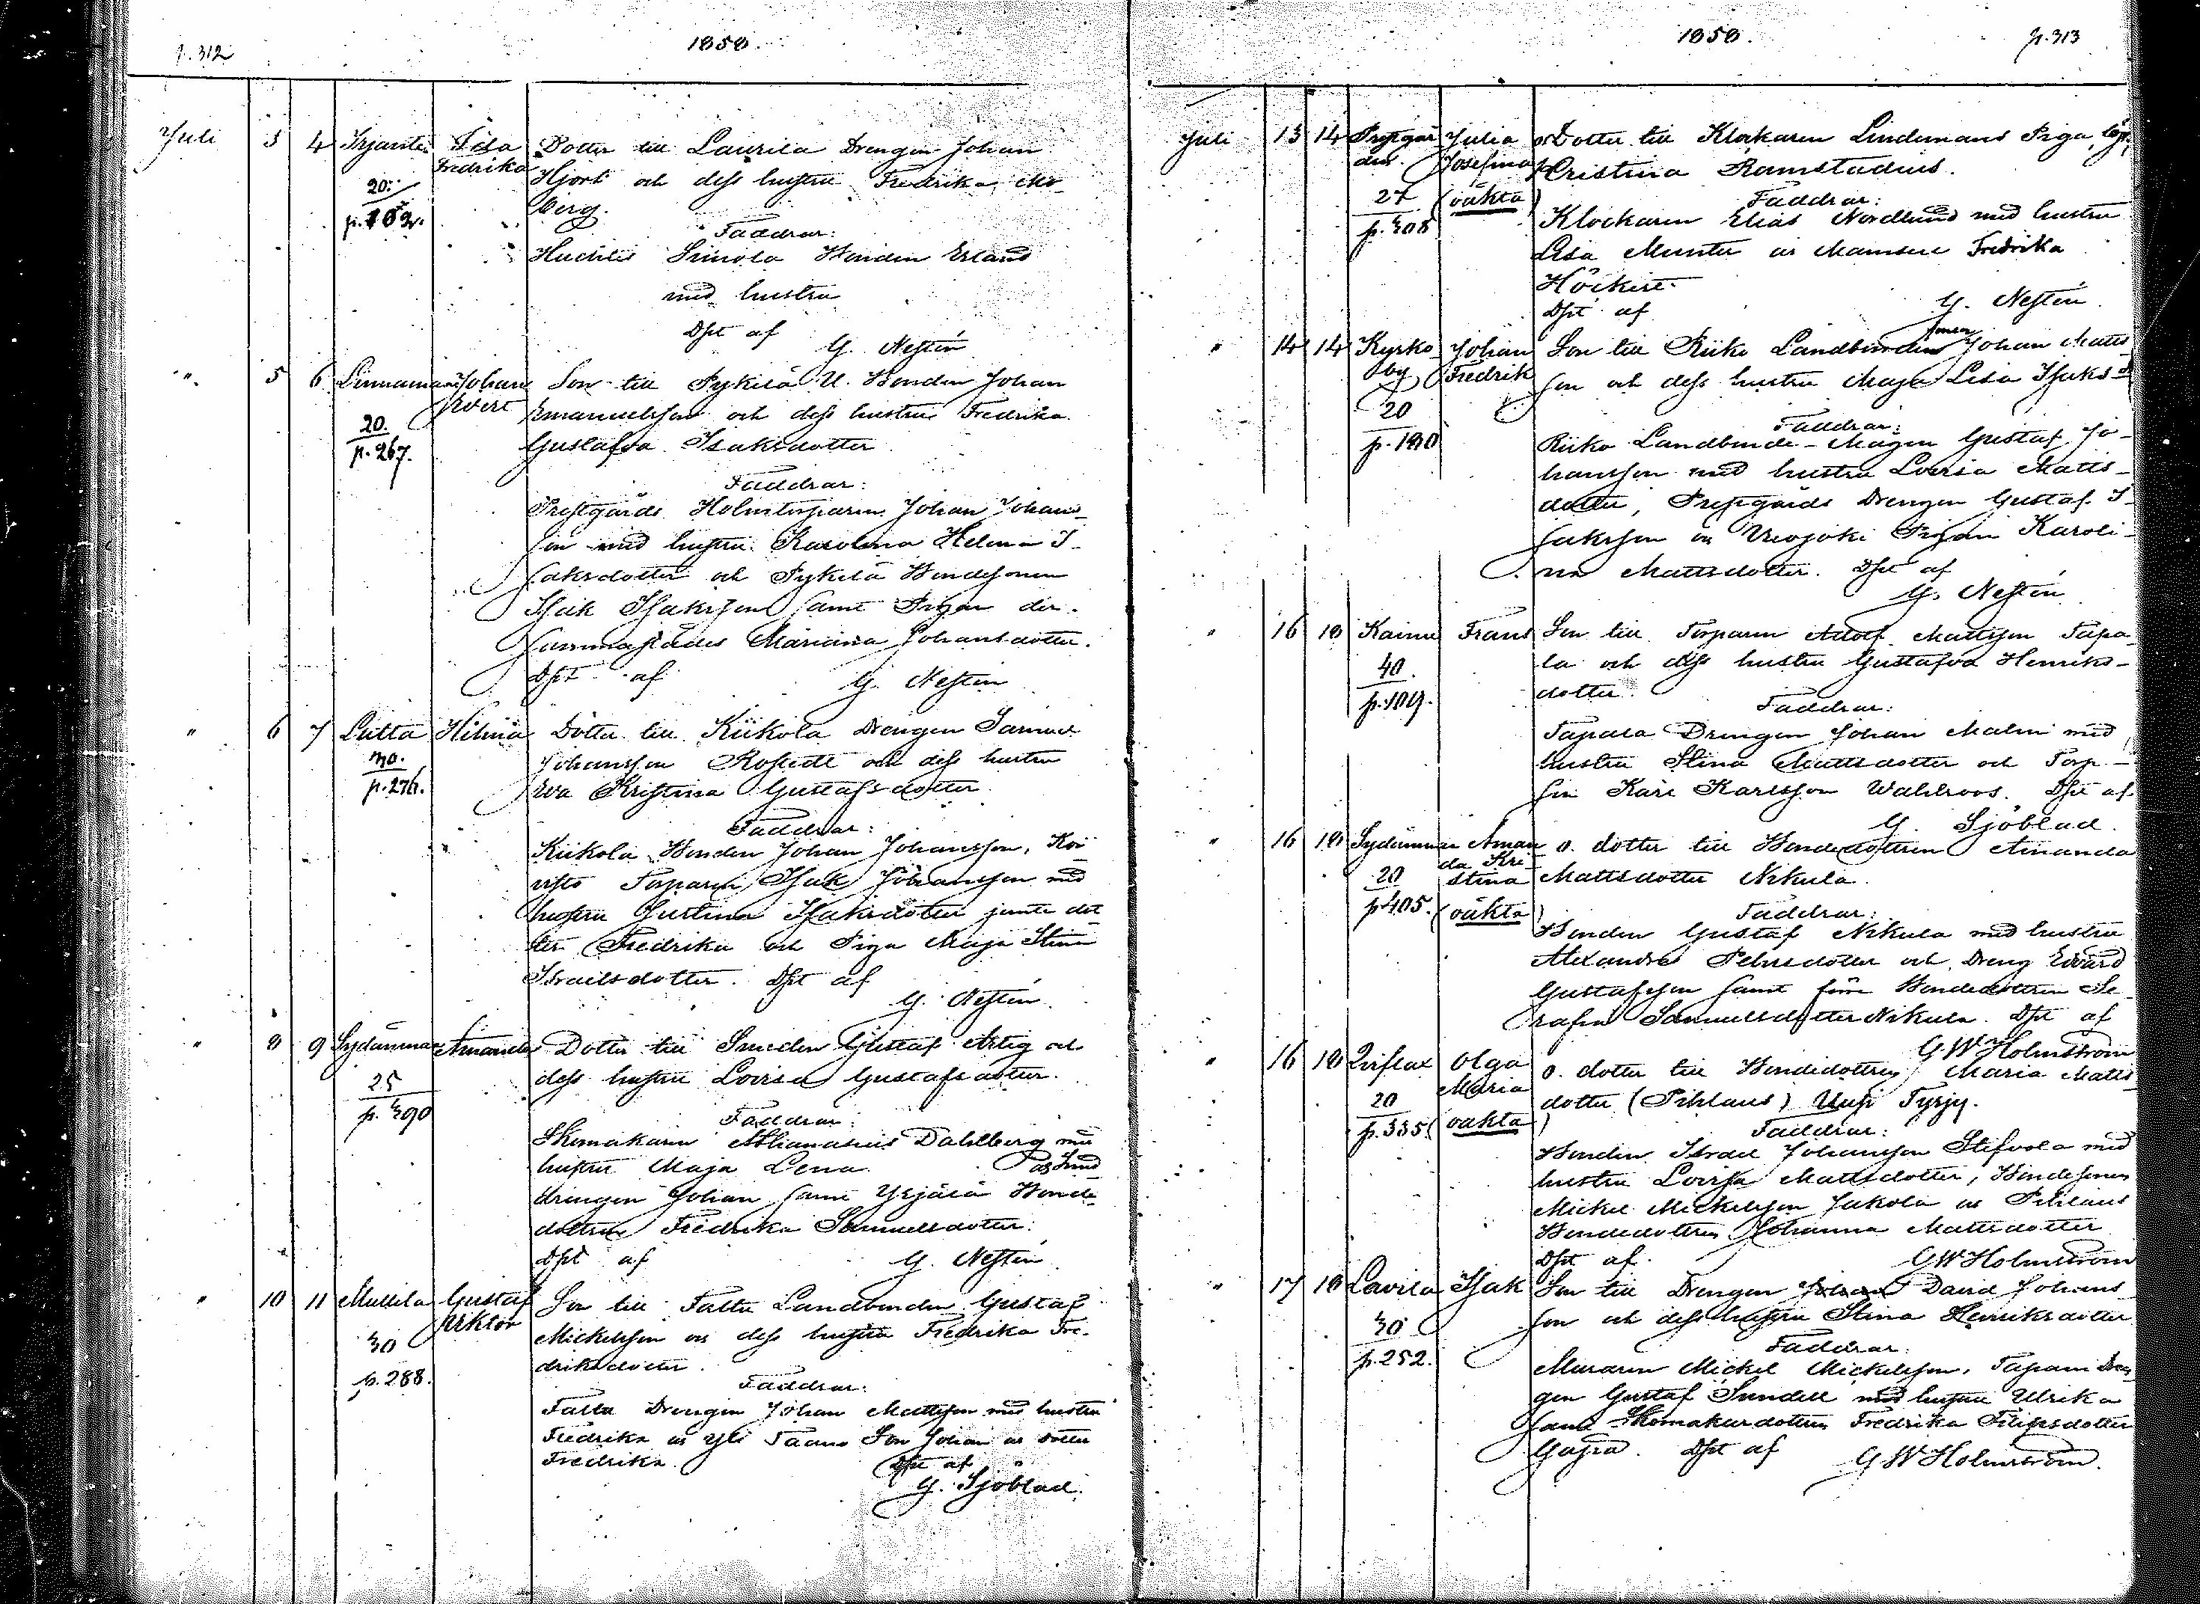 p. 312
1858.
Juli 3 4 Lisa Dotter till Laurila Drengen Johan
Fredrika Hjort och dess hustru Fredrika Mo-
20. berg.
Faddrar:
Bonden Erland
med hustru
Dpt af
G. Nestén
" 5 6 Linnamaa Johan Son till Pykilä Bonden Johan
Evert Emanuelsson och dess hustru Fredrika
20. Gustafva Isaksdotter
p. 267.
Faddrar:
Prestgårds Holmtorparn Johan Johans-
son med hustru Karolina Helena I-
saksdotter och Pykilä Bondesonen
Isak Isaksson samt Pigan der-
sammastädes Mariana Johansdotter.
Dpt af G. Nestén
" 6 7 Hilma Dotter till Kiikola Drengen Samuel
Johansson och dess hustru
p. 276. Eva Kristina Gustafsdotter
Faddrar:
Kiikola Bonden Johan Johansson, Koi-
visto Torparn Isak Johansson med
hustru Justina Isaksdotter jemte dot-
ter Fredrika och Piga Maja Stina
Israelsdotter. Dpt af
G. Nestén.
" 8 9 Sydänmaa Amanda Dotter till Smeden Gustaf Artig och
25 dess hustru Lovisa Gustafsdotter.
p. 290
Faddrar:
Skomakarn Athanasius Dahlberg med
hustru Maja Lena
drengen Johan samt Yrjälä Bonde-
dottren Fredrika Samuelsdotter.
Dpt af G. Nestén
" 10 11 Mullila Gustaf Son till Fatta Landbonden Gustaf
Viktor Mickelsson och dess hustru Fredrika Fre-
30 driksdotter.
p. 288.
Faddrar:
Fatta Drengen Johan Mattsson med hustru
Fredrika och Yli Son Johan och dotter
Fredrika. Dpt af
G. Sjöblad.
1858. p. 313
Juli 13 14 Prestgår- Julia o. Dotter till Klockaren Lindemans Piga,
den. Josefina Cristina Ramstadius.
27 (oäkta) Faddrar:
p. 308 Klockaren Elias Nordlund med hustru
Lisa Munter och Mamsell Fredrika
Höckert.
Dpt af G. Nestén.
" 14 14 Kyrko- Johan Son till Riiko Landbondesonen Johan Matts-
by Fredrik son och dess hustru Maja Lisa Isaksd
20
p. 190
Faddrar:
Riiko Landbonde-Mågen Gustaf Jo-
hansson med hustru Lovisa Matts-
dotter, Prestgårds Drengen Gustaf I-
saksson och Pigan Karoli-
na Mattsdotter. Dpt af
G. Nestén
" 16 18 Kainu Frans Son till Torparn Adolf Mattsson Tapa-
40. la och dess hustru Gustafva Henriks-
p. 109. dotter.
Faddrar:
Tapala Drengen Johan Malin med
hustru Stina Mattsdotter och Torp.
son Karl Karlsson Wahlroos. Dpt af
G. Sjöblad.
" 16 18 Sydänmaa Aman- o. dotter till Bondedottren Amanda
da Kri-
20 stina Mattsdotter Nikula.
p 405. (oäkta) Faddrar:
Bonden Gustaf Nikula med hustru
Alexandra dotter och Dreng Edvard
Gustafsson samt förre Bondedottren Se-
rafia Samuelsdotter Nikula. Dpt af
G W Holmström
" 16 18 Olga o. dotter till Bondedottren Maria Matts-
20 Maria dotter (Pihlaus)
p. 335. (oäkta) Faddrar:
Bonden Israel Johansson med
hustru Lovisa Mattsdotter, Bondesonen
Mickel Mickelsson Jakola och Pihlaus
Bondedottren Johanna Mattsdotter
Dpt af. G W Holmström
" 17 18 Lavila Isak Son till Drengen David Johans-
30 son och dess hustru Stina Henriksdotter
p. 252. Faddrar:
Muraren Mickel Mickelsson, Dren-
gen Gustaf Sundell med hustru Ulrika
samt Skomakardottren Fredrika Filipsdotter
Dpt af G W Holmström.